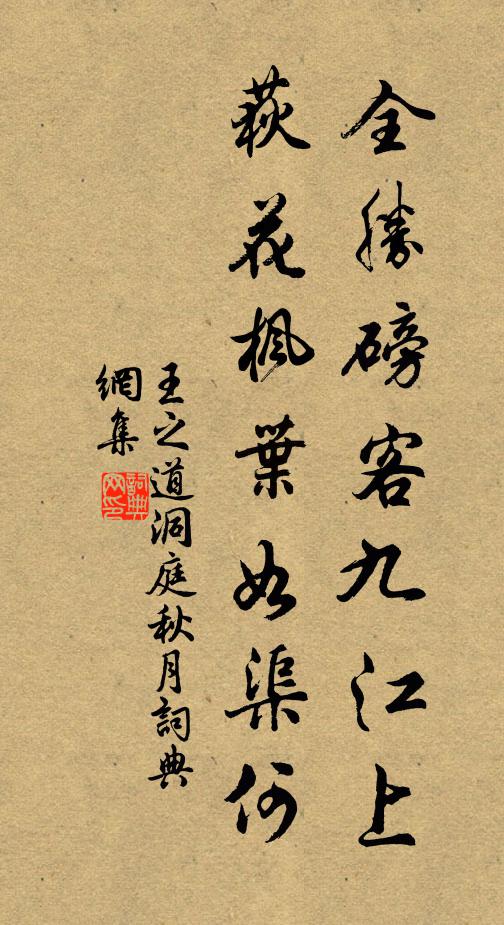 全勝磅客九江上
荻花楓葉如渠何
王之道洞庭秋月詞典
網集
詞典
网印